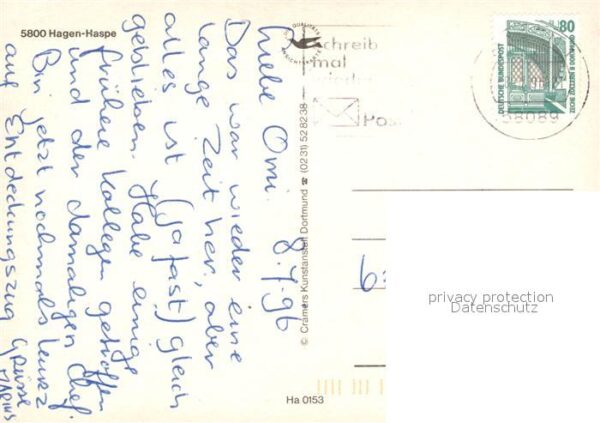 5800 Hagen-Haspe
Liebe Omi. 8.7.96
Das war wieder eine
lange Zeit her, aber
alles ist (ja fast) gleich
geblieben. Habe einige
frühere Kollegen getroffen
und den damaligen Chef.
Bin jetzt nochmals kurz
auf Entdeckungszug Grüsse
MARIUS
© Cramers Kunstanstalt Dortmund ☎ (0231) 528238
Schreib
mal
wieder
Post
58089
80
DEUTSCHE BUNDESPOST
ZECHE ZOLLERN II DORTMUND
6
privacy protection
Datenschutz
Ha 0153